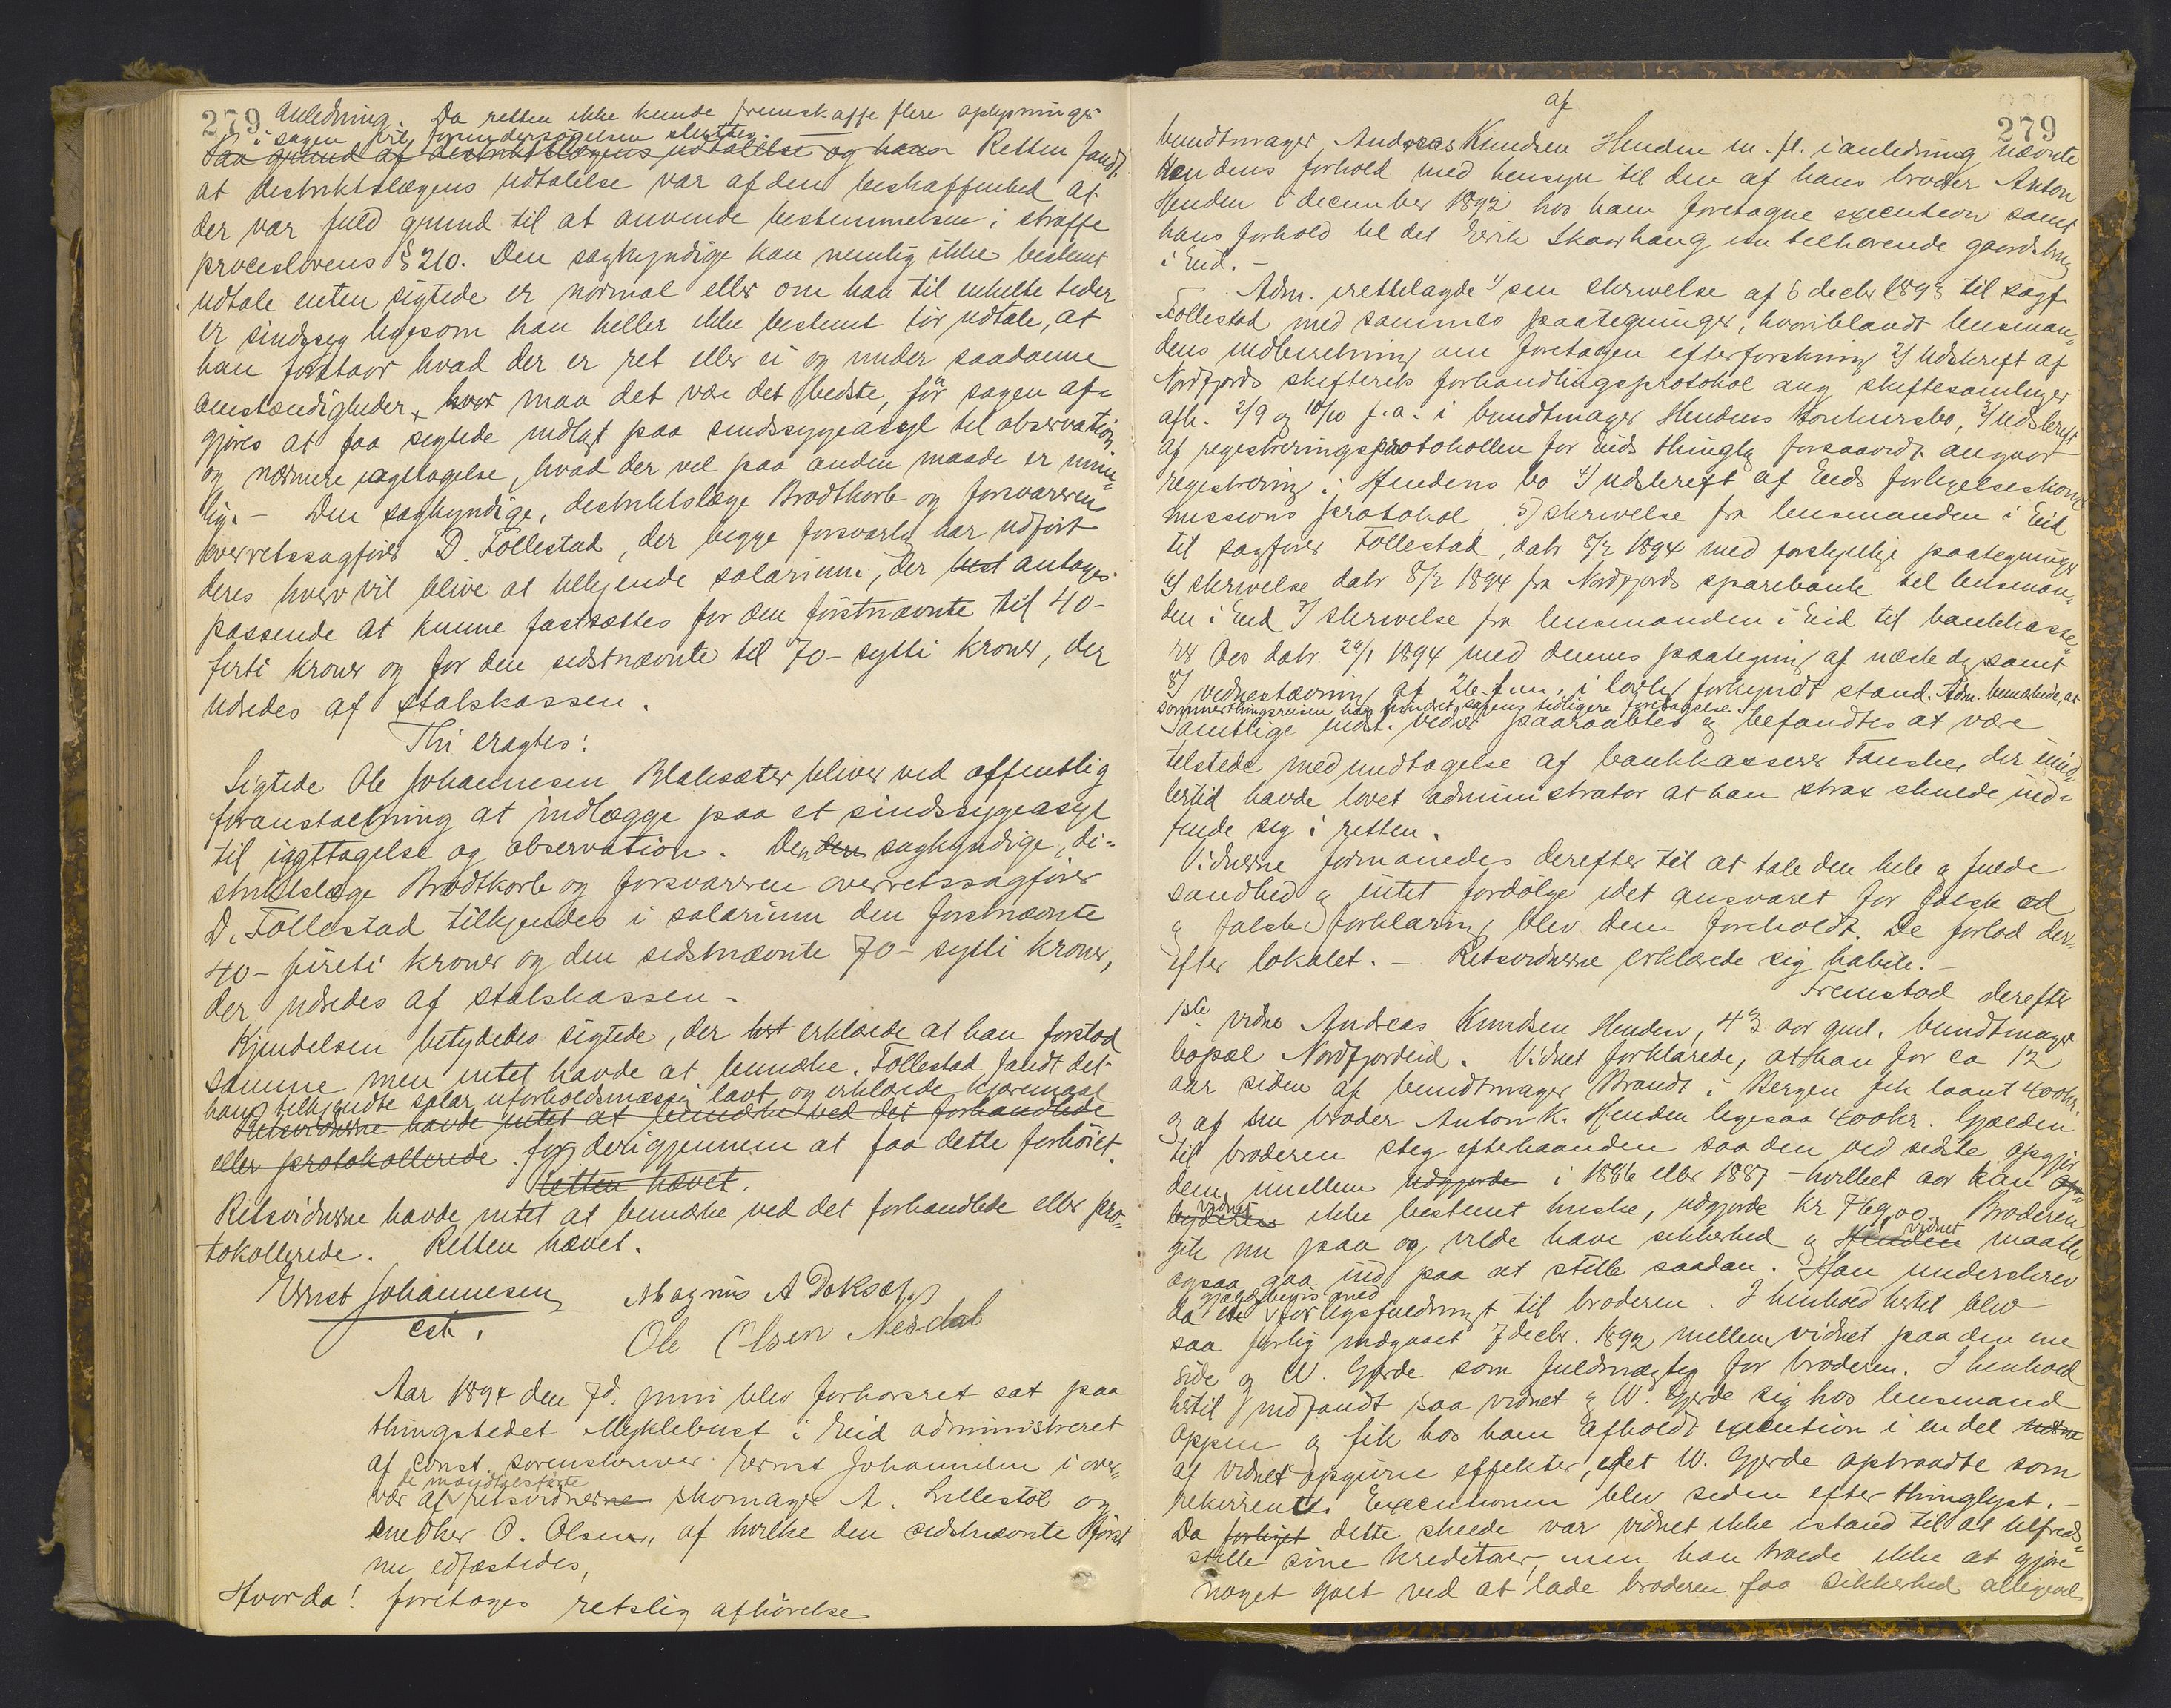 279 anledning. Da retten ikke kunde fremskaffe flere oplysninger
i sagen blev forundersøgelsen sluttet.
Paa grund af distriktslægens udtalelse og hans Retten fandt
at distriktslægens udtalelse var af den beskaffenhed at
der var fuld grund til at anvende bestemmelsen i straffe
proceslovens § 210. Den sagkyndige kan nemlig ikke bestemt
udtale enten sigtede er normal eller om han til enkelte tider
er sindssyg ligesom han heller ikke bestemt tør udtale, at
han forstaar hvad der er ret eller ei og under saadanne
omstændigheder hvor maa det være det bedste, før sagen af-
gjøres at faa sigtede indlagt paa sindssygeasyl til observation
og nærmere iagttagelse, hvad der vel paa anden maade er umu-
lig. – Den sagkyndige, distriktslæge Brodtkorb og forsvareren
overretssagfører D. Follestad, der begge forsvarlig har udført
deres hverv vil blive at tilkjende salarium, der best antages
passende at kunne fastsættes for den førstnævnte til 40-
firti kroner og for den sidstnævnte til 70- sytti kroner, der
udredes af statskassen.
Thi eragtes:
Sigtede Ole Johannesen Blaksæter bliver ved offentlig
foranstaltning at indlægge paa et sindssygeasyl
til iagttagelse og observation. Den den sagkyndige, di-
striktslæge Brodtkorb og forsvareren overretssagfører
D. Follestad tilkjendes i salarium den førstnævnte
40- fireti kroner og den sidstnævnte 70- sytti kroner,
der udredes af statskassen –
Kjendelsen betydedes sigtede, der erklærede at han forstod
samme men intet havde at bemærke. Follestad fandt det
ham tilkjendte salær uforholdsmæssig lavt og erklærede kjæremaal
Retsvidnerne havde intet at bemærke ved det forhandlede
eller protokollerede for derigjennem at faa dette forhøiet.
Retten hævet.
Retsvidnerne havde intet at bemærke ved det forhandlede eller pro-
tokollerede. Retten hævet.
Ernst Johannesen Magnus A
cst. Ole Olsen Nesdal
Aar 1894 den 7d. juni blev forhørsret sat paa
thingstedet Myklebust i Eid administreret
af const. sorenskriver Ernst Johannesen i over-
de mandtalsførte
vær af retsvidnerne skomager A. Lillestøl og
snedker O. Olsen, af hvilke den sidstnævnte først
nu edfæstedes,
Hvorda! foretoges retslig afhørelse
af 279
bundtmager Andreas Knudsen Henden m. fl. i anledning nævnte
Hendens forhold med hensyn til den af hans broder Anton
Henden i december 1892 hos ham foretagne execution samt
hans forhold til det Eirik Skaarhaug tilhørende gaardsbrug
i Eid. –
Adm. irettelagde 1) sin skrivelse af 6 decbr 1893 til sagf.
Follestad med sammes paategninger, hvoriblandt lensman-
dens indberetning om foretagen efterforskning 2) Udskrift af
Nordfjords skifterets forhandlingsprotokol ang skiftesamlinger
afh. 2/9 og 10/10 f.a. i bundtmager Hendens konkursbo, 3) Udskrift
af registreringsprotokollen for Eids thinglag forsaavidt angaar
registrering i Hendens bo 4) udskrift af Eids forligelseskom-
missions protokol 5) skrivelse fra lensmanden i Eid
til sagfører Follestad, datr 8/2 1894 med forskjellige paategninger
6) skrivelse datr 8/2 1894 fra Nordfjords sparebank til lensman-
den i Eid 7) skrivelse fra lensmanden i Eid til bankkasse-
rer Aas datr 29/1 1894 med dennes paategning af næste dg samt
8) vidnestævning af 26 f.m. i lovlig forkyndt stand. Adm. bemærkede, at
sommerthingsreisen har hindret sagens tidligere foretagelse.
Samtlige indst. vidner paaraabtes og befandtes at være
tilstede med undtagelse af bankkasserer Tanske, der imid-
lertid havde lovet administrator at han strax skulde ind-
finde sig i retten.
Vidnerne formanedes derefter til at tale den hele og fulde
sandhed og intet fordølge idet ansvaret for falsk ed
og falsk forklaring blev dem foreholdt. De forlod der-
efter lokalet. – Retsvidnerne erklærede sig habile. –
Fremstod derefter
1ste vidne Andreas Knudsen Henden, 43 aar gml. bundtmager
bopæl Nordfjordeid. Vidnet forklarede, at han for ca 12
aar siden af bundtmager Brandt i Bergen fik laant 400 kr.
og af sin broder Anton K. Henden ligesaa 400 kr. Gjælden
til broderen steg efterhaanden saa den ved sidste opgjør
dem imellem udgjorde i 1886 eller 1887 – hvilket aar kan
vidnet
ikke bestemt huske, udgjorde kr 769,00. Broderen
gik nu paa og vilde have sikkerhed og Henden vidnet maatte
ogsaa gaa ind paa at stille saadan. Han underskrev
gjældsbevis med
da en forligsfuldmagt til broderen. I henhold hertil blev
saa forlig indgaaet 7 decbr. 1892 mellem vidnet paa den ene
side og W. Gjerde som fuldmægtig for broderen. I henhold
hertil indfandt saa vidnet og W. Gjerde sig hos lensmand
Oppen og fik hos ham afholdt execution i en del
af vidnet opgivne effekter, idet W. Gjerde optraadte som
rekvirent. Executionen blev siden efter thinglyst. –
Da forliget dette skeede var vidnet ikke istand til at tilfreds-
stille sine kreditorer, men han troede ikke at gjøre
noget galt ved at lade broderen faa sikkerhed alligevel.